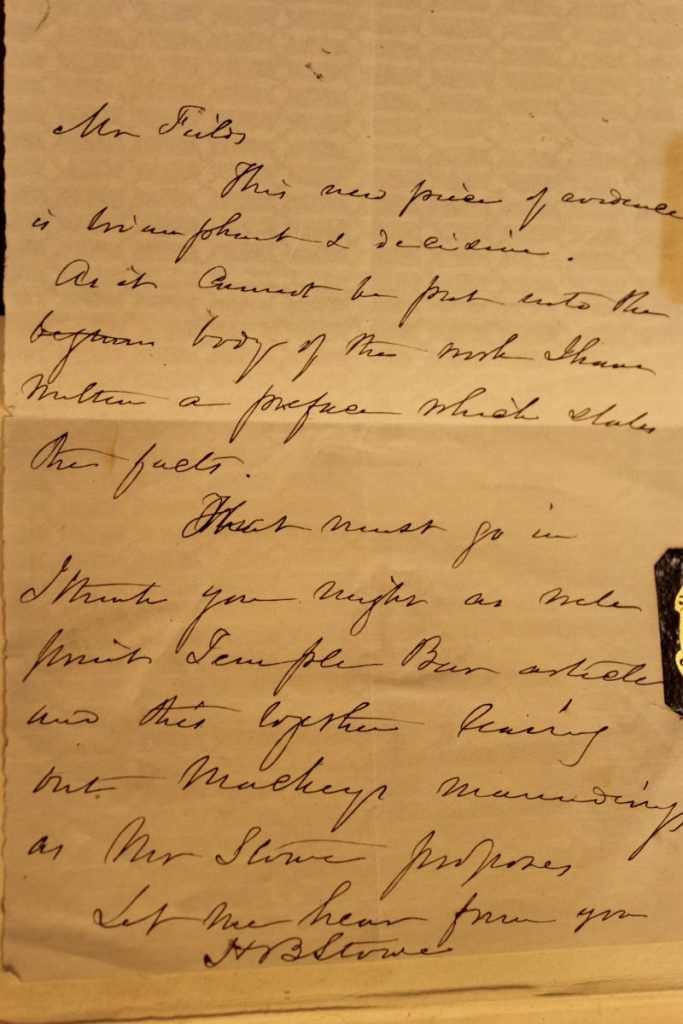 Mr Fields
This new piece of evidence
is triumphant & decisive.
As it cannot be put into the
body of the work I have
written a preface which states
the facts.
That must go in
I think you might as well
print Temple Bar article
and this together leaving
out Mackeys maunderings
as Mr Stowe proposes
Let me hear from you
HBStowe